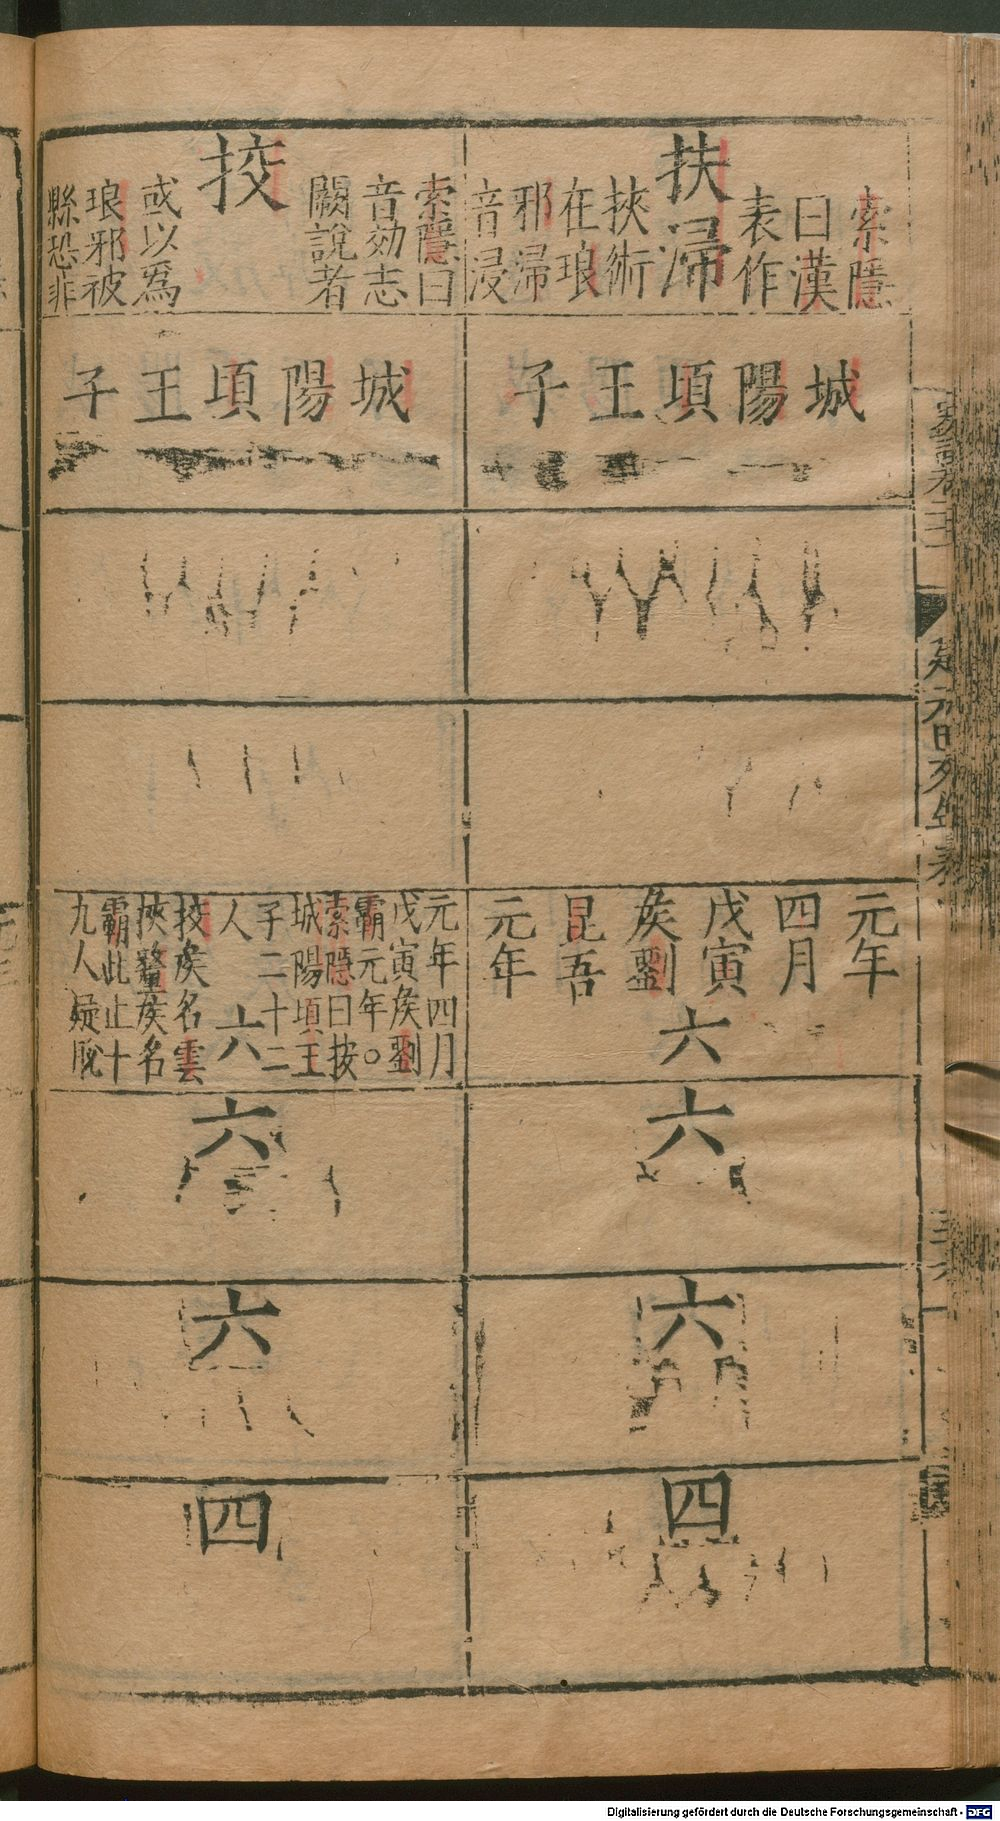 扶㴆
索隱
曰漢
表作
挾術
在琅
邪㴆
音浸
城陽頃王子
元年
四月
戊寅
矦劉
昆吾
元年
六
六
六
四
挍
索隱曰
音効志
闕說者
或以爲
琅邪被
縣恐非
城陽頃王子
元年四月
戊寅矦劉
霸元年○
索隱曰按
城陽頃王
子二十二
人
挍矦名雲
挾𨤲矦名
霸此止十
九人疑脫
六
六
六
四
Digitalisierung gefördert durch die Deutsche Forschungsgemeinschaft - DFG